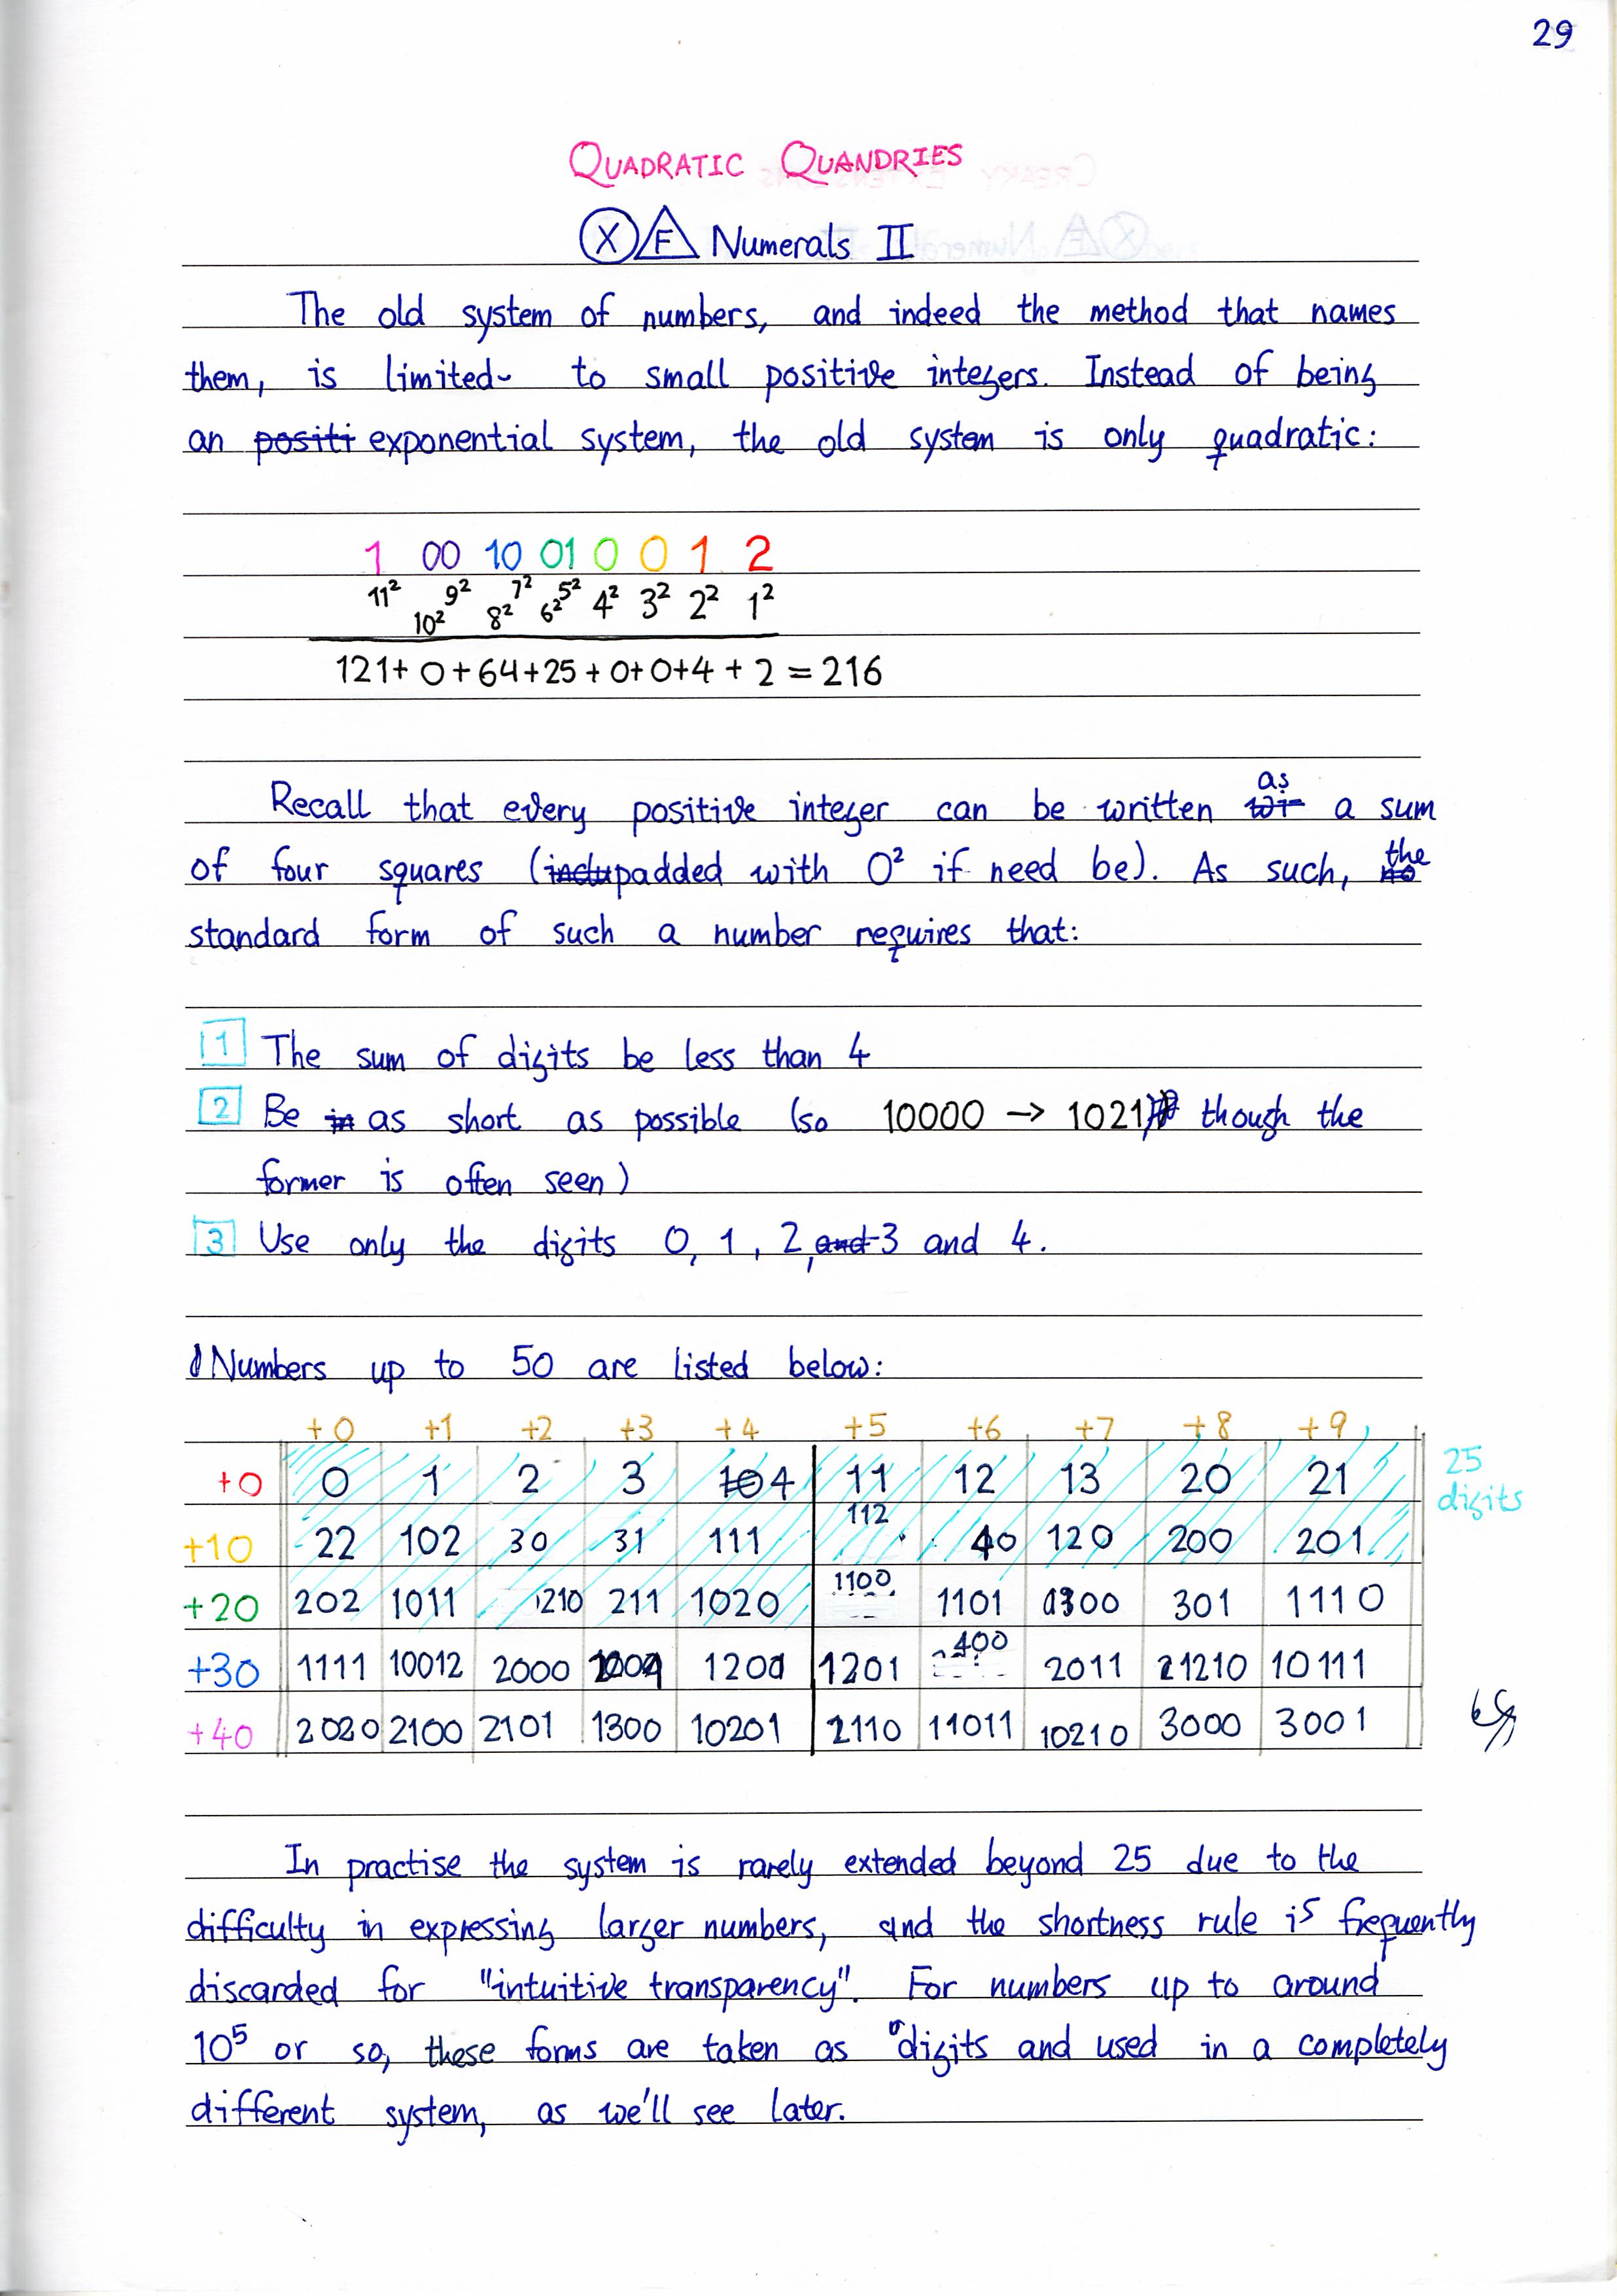 29
QUADRATIC QUANDRIES
X E Numerals II
The old system of numbers, and indeed the method that names
them, is limited to small positive integers. Instead of being
an positi exponential system, the old system is only quadratic:
1 00 10 01 0 0 1 2
11² 10² 9² 8² 7² 6² 5² 4² 3² 2² 1²
121+ 0+64+25+0+0+4+2=216
as
Recall that every positive integer can be written wi a sum
of four squares (inclu padded with 0² if need be). As such, the
standard form of such a number requires that:
1 The sum of digits be less than 4
2 Be in as short as possible (so 10000 → 1021, though the
former is often seen)
3 Use only the digits 0, 1, 2, and 3 and 4.
Numbers up to 50 are listed below:
+0 +1 +2 +3 +4 +5 +6 +7 +8 +9
+0 0 1 2 3 10 4 11 12 13 20 21 25 digits
+10 22 102 30 31 111 112 40 120 200 201
+20 202 1011 1210 211 1020 1100 1101 300 301 1110
+30 1111 10012 2000 1200 1201 400 2011 21210 10111
+40 2020 2100 2101 1300 10201 2110 11011 10210 3000 3001
In practise the system is rarely extended beyond 25 due to the
difficulty in expressing larger numbers, and the shortness rule is frequently
discarded for "intuitive transparency". For numbers up to around
10⁵ or so, these forms are taken as digits and used in a completely
different system, as we'll see later.